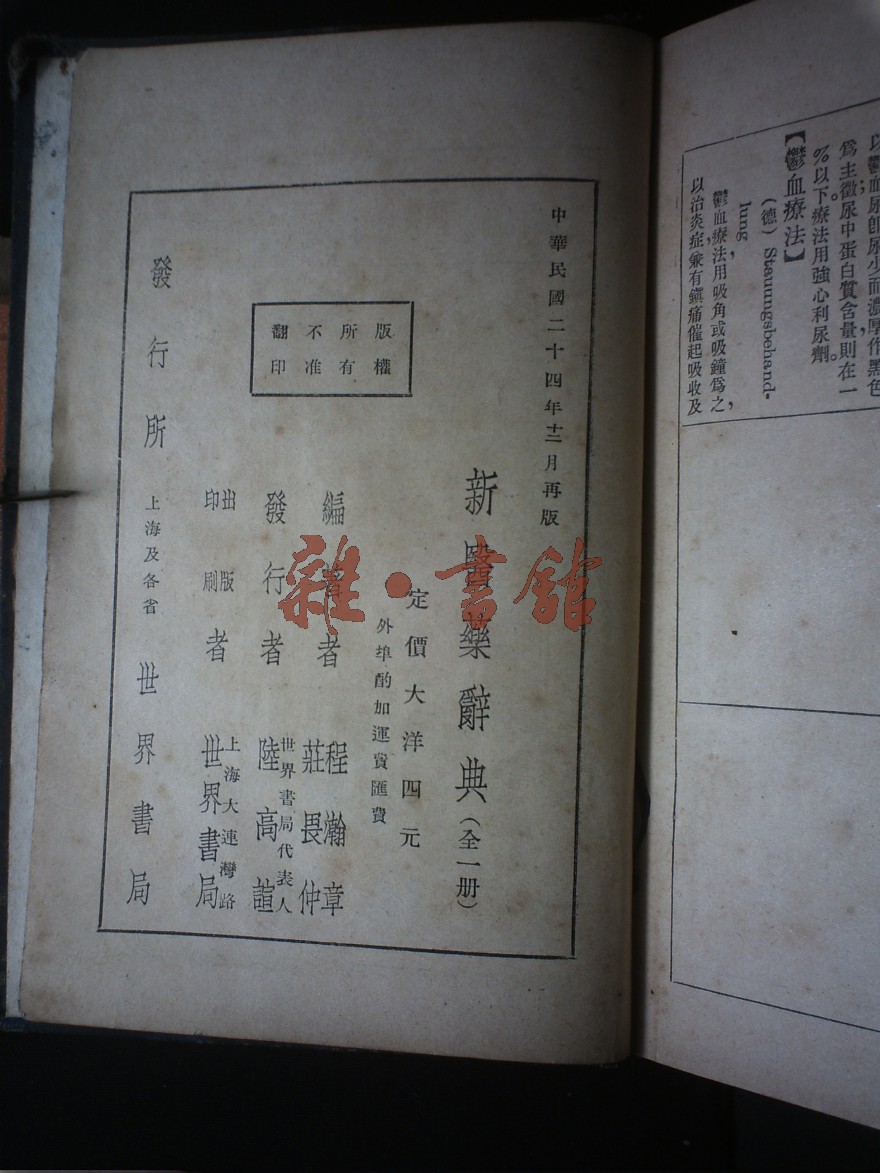 以鬱血尿卽尿少而濃厚作黑色
爲主徵尿中蛋白質含量則在一
%以下療法用強心利尿劑。
【鬱血療法】
(德) Stauungsbehand-
lung
鬱血療法用吸角或吸鐘爲之,
以治炎症兼有鎭痛催起吸收及
中華民國二十四年十二月再版
新醫藥辭典(全一册)
定價大洋四元
外埠酌加運費匯費
版權
所有
不准
翻印
編著者 程瀚章
莊畏仲
發行者 世界書局代表人
陸高誼
出版
印刷者 上海大連灣路
世界書局
發行所 上海及各省 世界書局
雜·書館